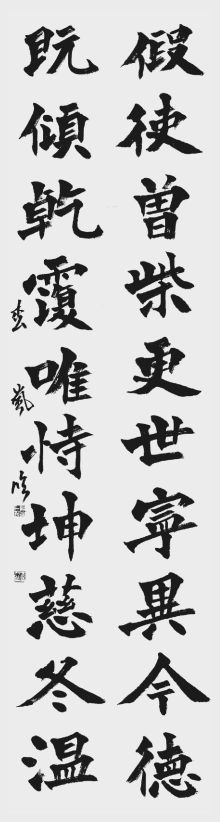 假使曽柴更世寧異今德
既傾乾覆唯恃坤慈冬温